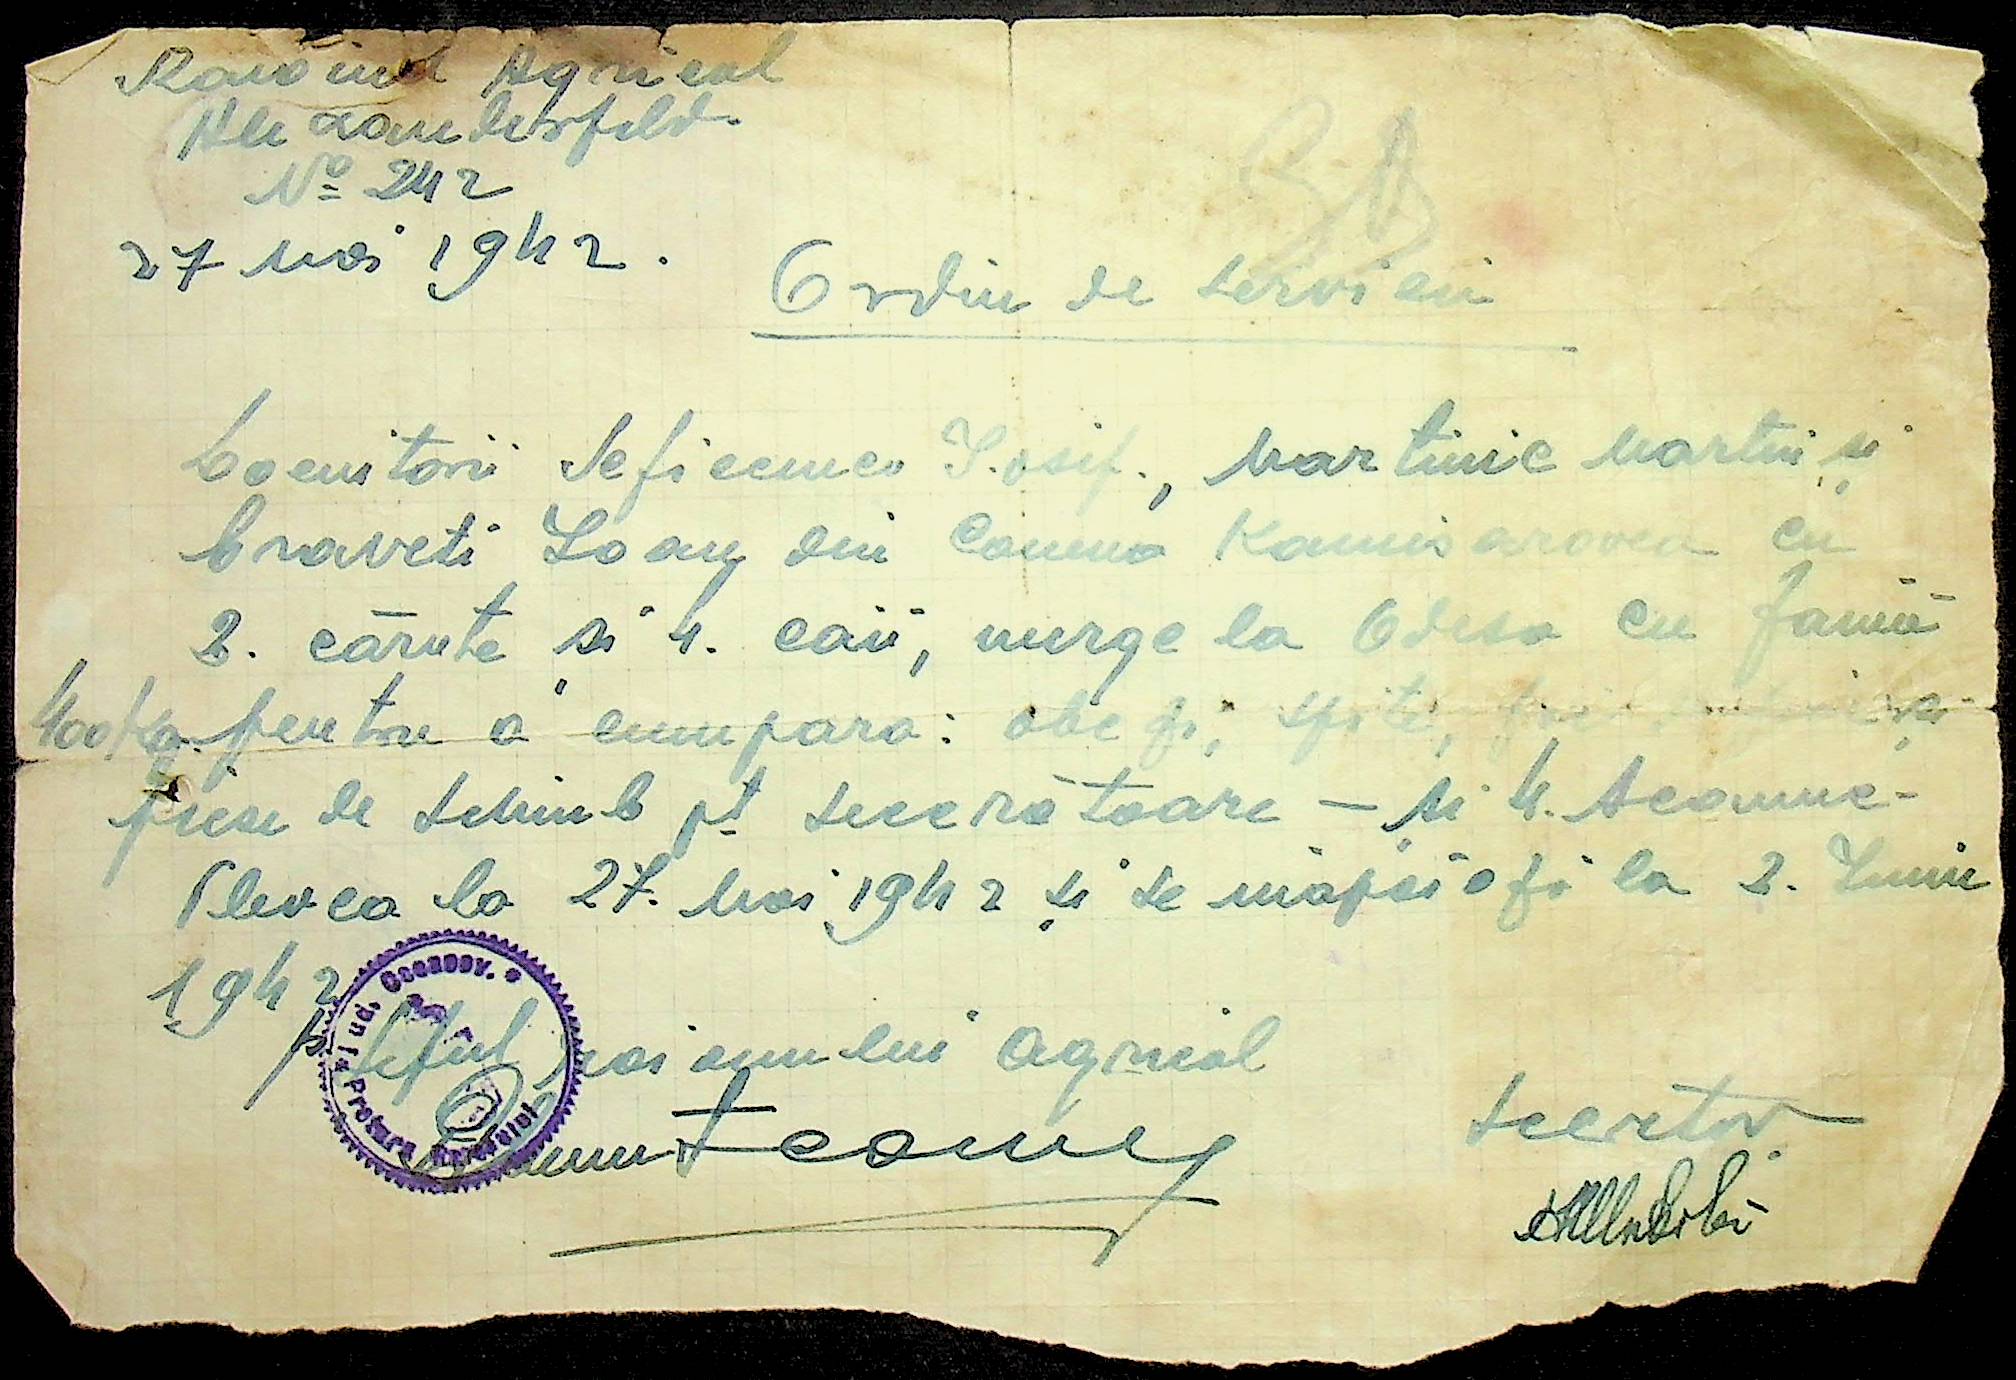 Raionul Agricol
Alexanderfeld.
No 242
27 Mai 1942.
Ordin de serviciu
Locuitorii Iosif., Martinic Martin și
Craveti Ioan din Comuna Kamisarovca cu
2. căruțe și 4. cai, merge la Odesa cu făină
400 Kg. pentru a cumpara: obezi, spite, și
piese de schimb pt secerătoare – și 4. scaune-
Plecca la 27. Mai 1942 și se inapoiază la 2. Iunie
1942
p. Șeful raionului agricol
Secretar
Jud. Oceacov. * Pretura Raionului *